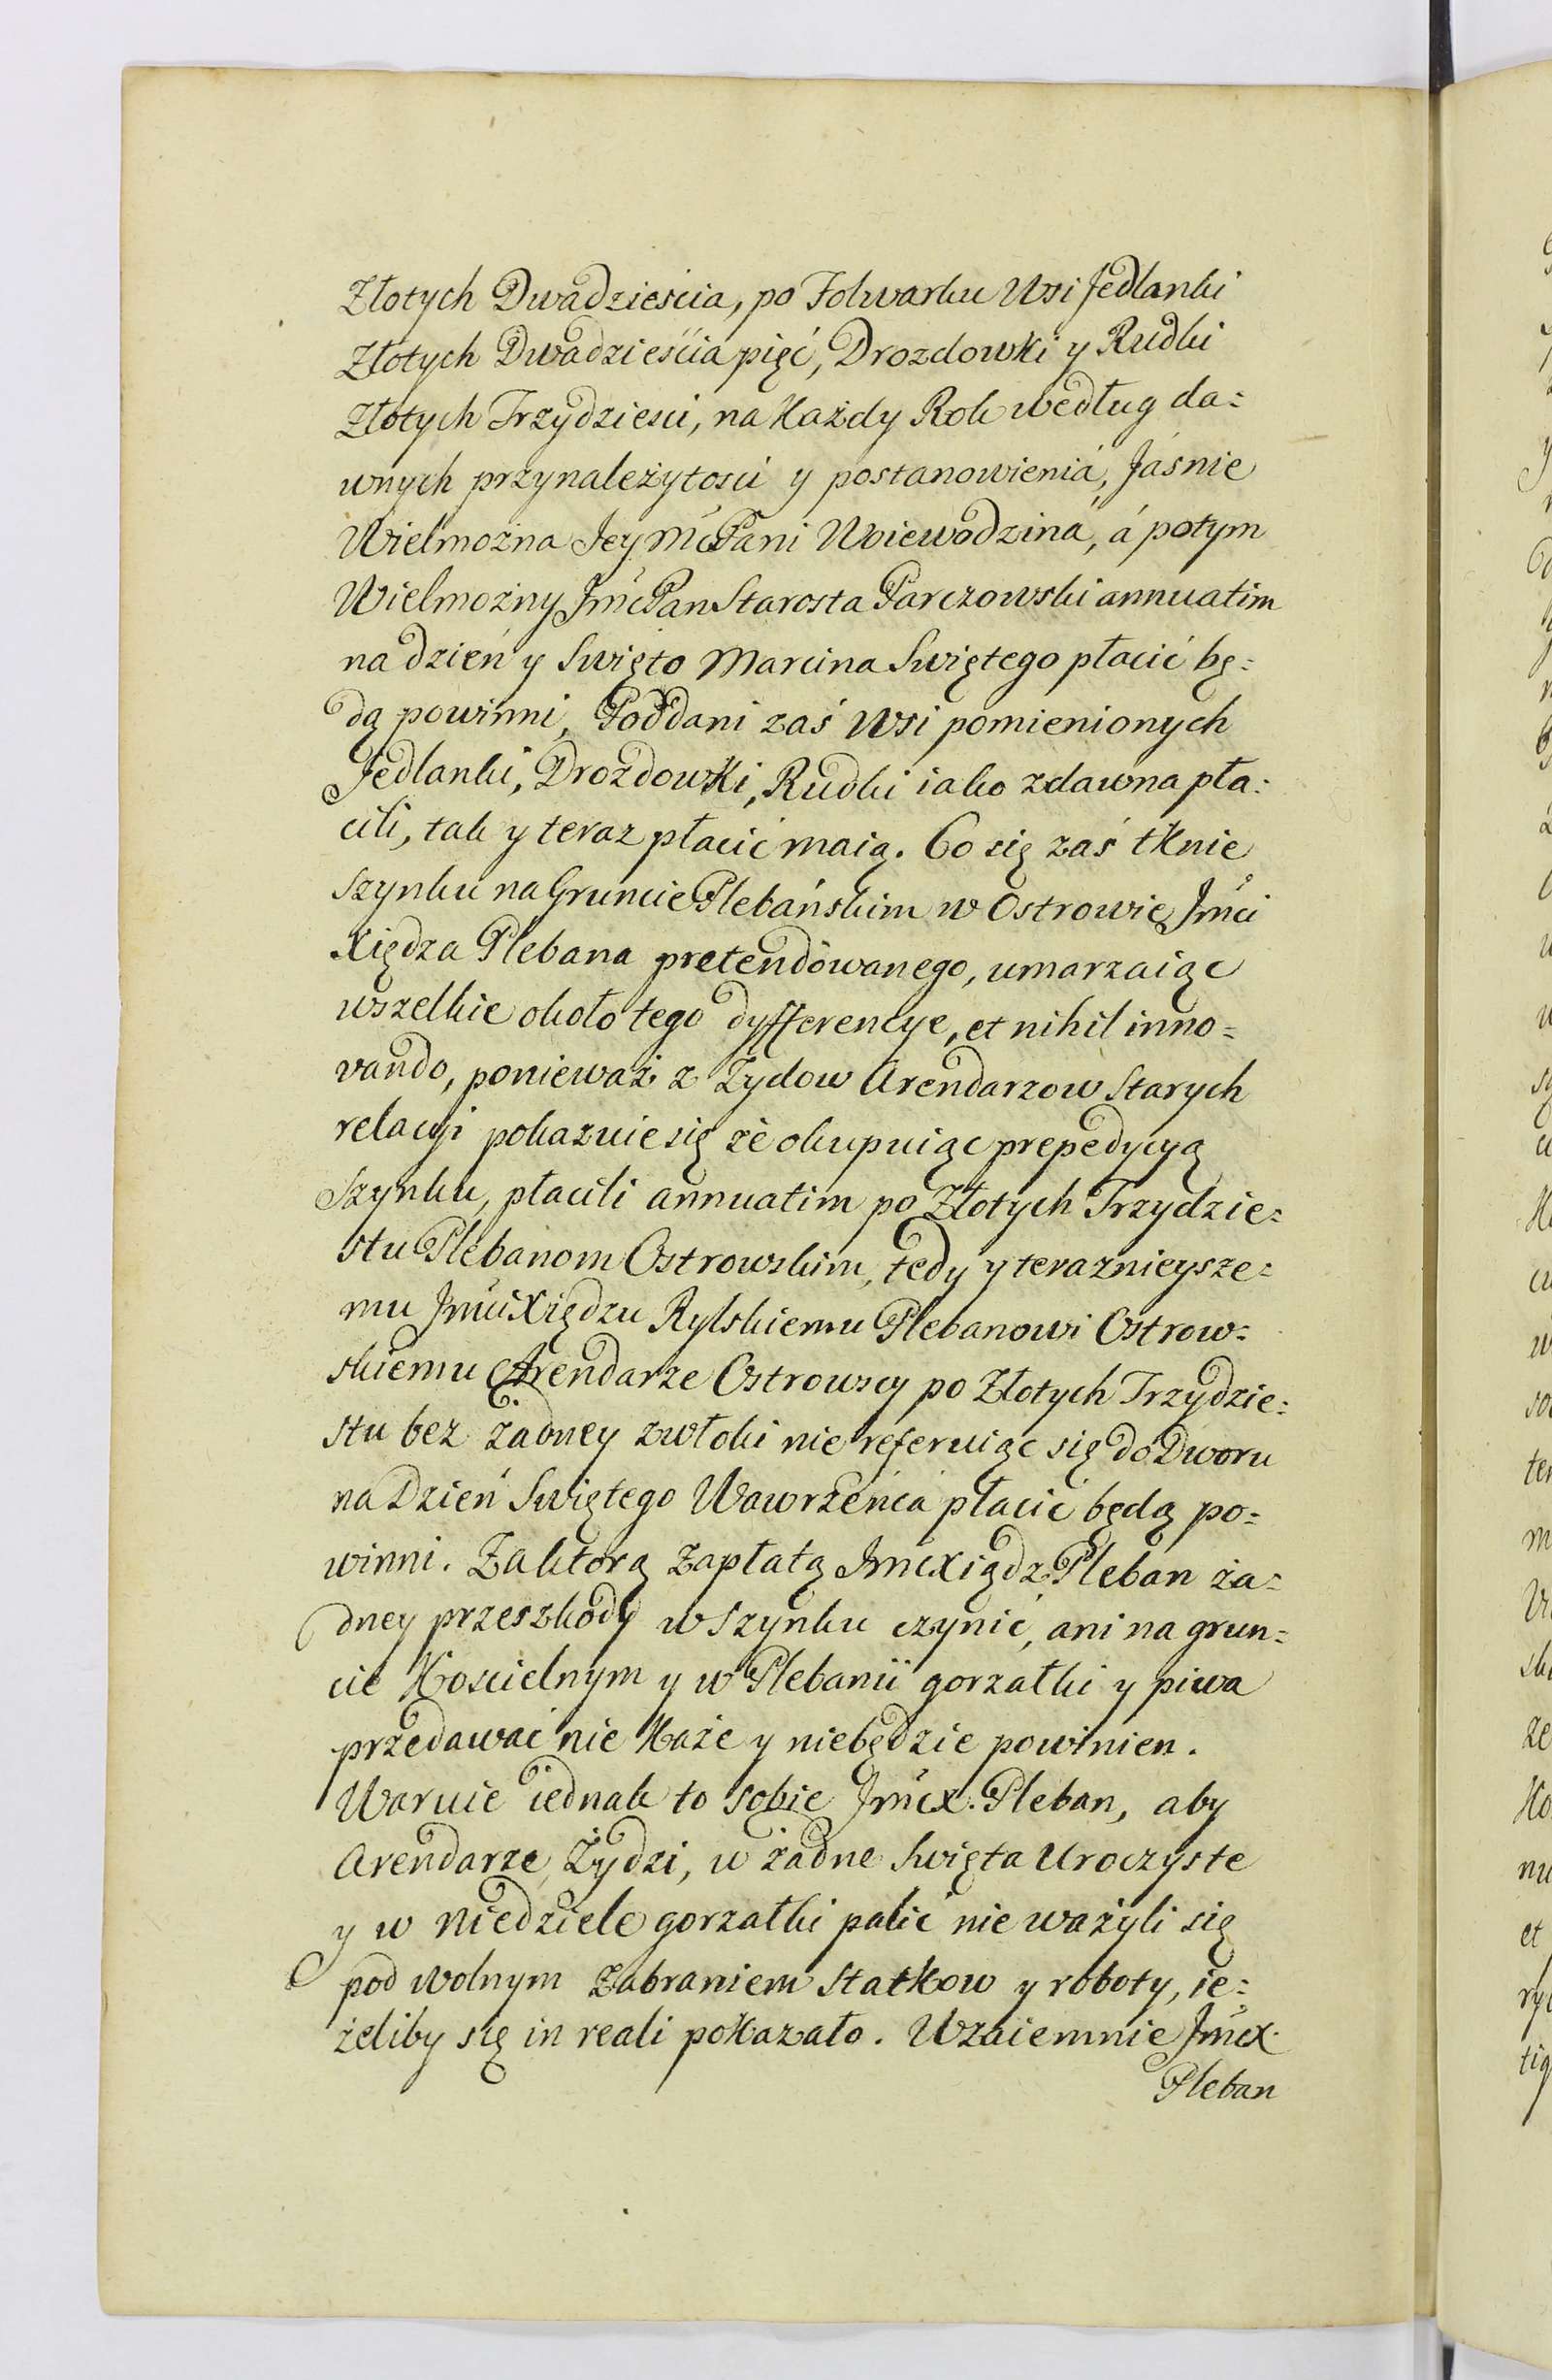 Złotych Dwadziescia, po Folwarku Wsi Jedlanki
Złotych Dwadziescia pięć, Drozdowki y Rudki
Złotych Trzydziesci, na Każdy Rok według da=
wnych przynależytosci y postanowieniá, Jáśnie
Wielmożna Jey Mć Pani Woiewodziná, á potym
Wielmożny Jmć Pan Starosta Parczowski annuatim
na dzień y Swięto Marcina Swiętego płacić bę=
dą powinni, Poddani zaś Wsi pomienionych
Jedlanki, Drozdowki, Rudki iako zdawna pła=
cili, tak y teraz płacić maią. Co się zaś tknie
Szynku na Gruncie Plebańskim w Ostrowie Jmci
Xiędza Plebana pretendowanego, umarzaiąc
wszelkie około tego dyfferencye, et nihil inno=
vando, ponieważ z Zydow Arendarzow Starych
relacyi pokazuie się że okupuiąc prepedycyą
Szynku, płacili annuatim po Złotych Trzydzie=
stu Plebanom Ostrowskim, tedy y teraznieysze=
mu Jmci Xiędzu Rylskiemu Plebanowi Ostrow=
skiemu Arendarze Ostrowscy po Złotych Trzydzie=
stu bez żadney zwłoki nie referuiąc się do Dworu
na Dzień Swiętego Wawrzeńca płacić będą po=
winni. Za ktorą Zapłatą Jmć Xiądz Pleban ża=
dney przeszkody w Szynku czynić, ani na grun=
cie Koscielnym y w Plebanii gorzałki y piwa
przedawać nie każe y niebędzie powinien.
Waruie iednak to sobie Jmć X. Pleban, aby
Arendarze, Żydzi, w żadne Swięta Uroczyste
y w Niedziele gorzałki palić nie ważyli się
pod wolnym Zabraniem Statkow y roboty, ie=
żeliby się in reali pokazało. Wzaiemnie Jmć X.
Pleban